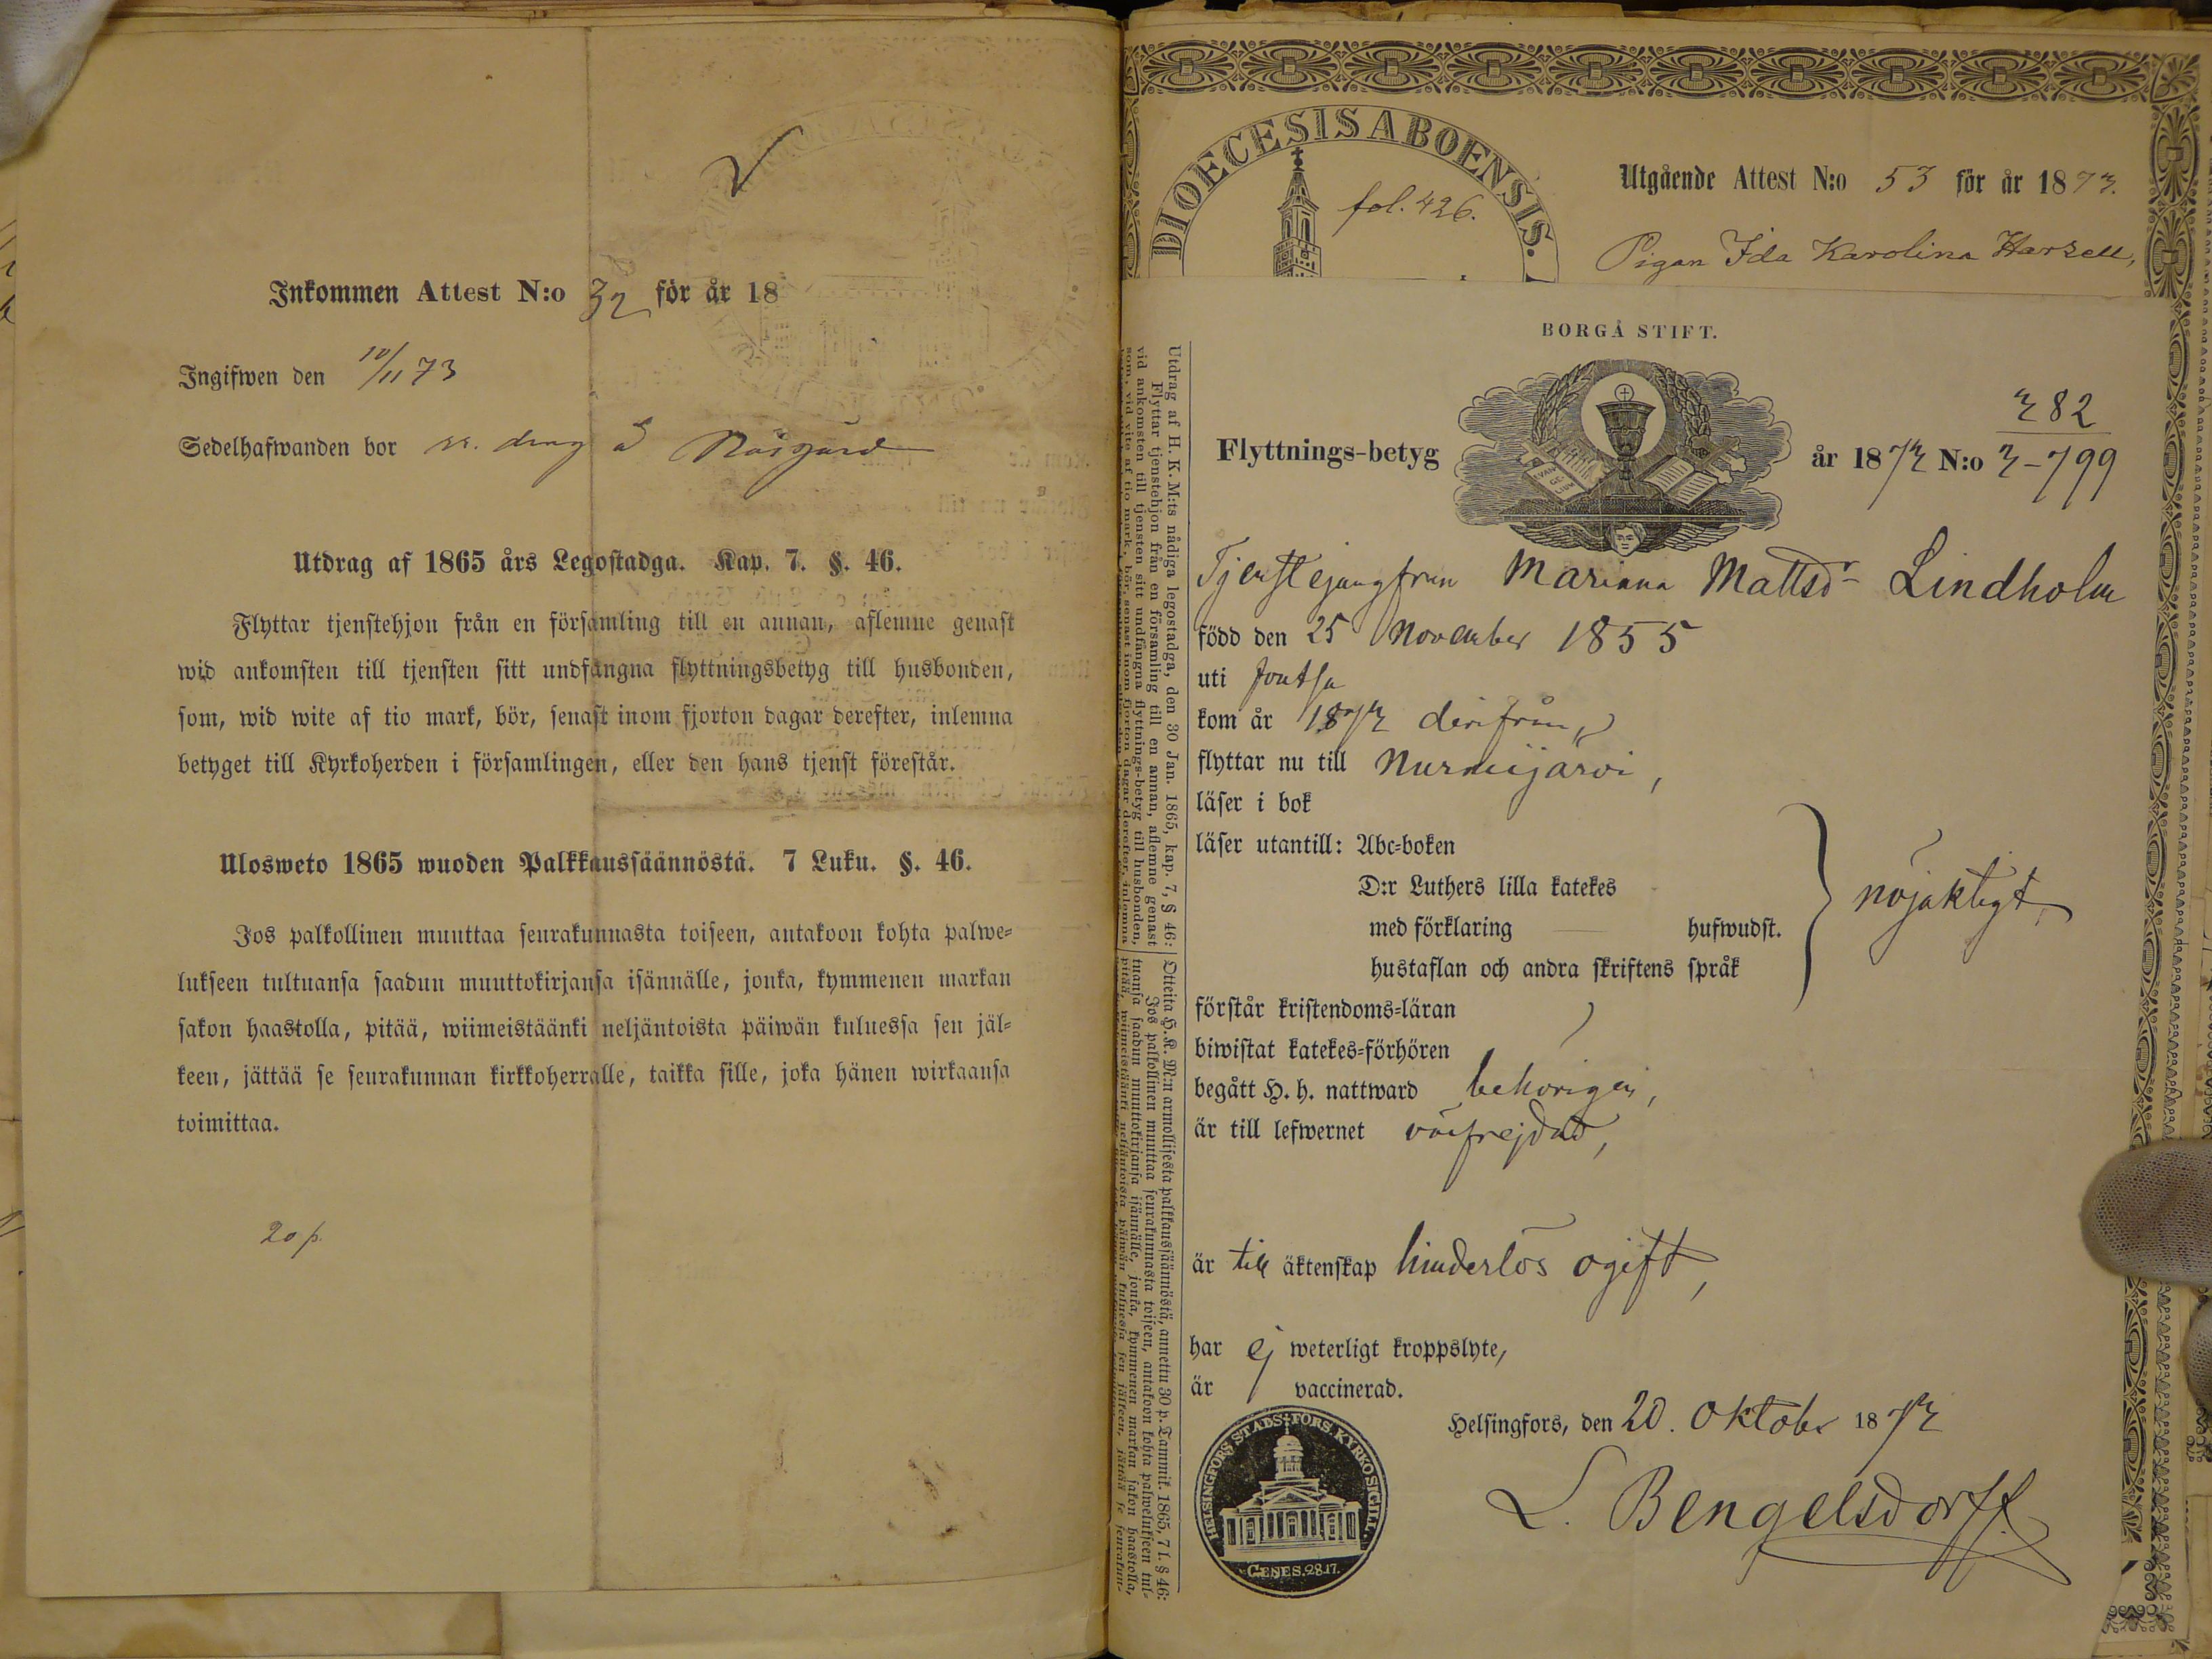 Inkommen Attest N:o 32 för år 18
Ingifwen den 10/11 73
Sedelhafwanden bor
Utdrag af 1865 års Legostadga. Kap. 7. §. 46.
Flyttar tjenstehjon från en församling till en annan, aflemne genast
wid ankomsten till tjensten sitt undfångna flyttningsbetyg till husbonden,
som, wid wite af tio mark, bör, senast inom fjorton dagar derefter, inlemna
betyget till Kyrkoherden i församlingen, eller den hans tjenst förestår.
Ulosweto 1865 wuoden Palkkaussäännöstä. 7 Luku. §. 46.
Jos palkollinen muuttaa seurakunnasta toiseen, antakoon kohta palwe-
lukseen tultuansa saadun muuttokirjansa isännälle, jonka, kymmenen markan
sakon haastolla, pitää, wiimeistäänki neljäntoista päiwän kuluessa sen jäl-
keen, jättää se seurakunnan kirkkoherralle, taikka sille, joka hänen wirkaansa
toimittaa.
20 p.
DIOECESIS ABOENSIS.
fol. 426.
Utgående Attest N:o 53 för år 1873.
Pigan Ida Karolina
BORGÅ STIFT.
Flyttnings-betyg år 1873 N:o 3-799
382
Tjenstejungfrun Mariana Mattsdr Lindholm
född den 25 November 1855
uti Joutsa
kom år 1873 derifrån,
flyttar nu till Nurmijärvi,
läser i bok
läser utantill: Abc-boken
D:r Luthers lilla katekes
med förklaring hufwudst.
hustaflan och andra skriftens språk
nöjaktigt,
förstår kristendoms-läran
biwistat katekes-förhören
begått H. h. nattward behörigen,
är till lefwernet välfrejdad,
är till äktenskap hinderlös ogift,
har ej weterligt kroppslyte,
är vaccinerad.
Helsingfors, den 20. Oktober 1873
L. Bengelsdorff.
HELSINGFORS STADS FÖRS. KYRKOSIGILL.
GENES. 28.17.
Utdrag af H. K. M:ts nådiga legostadga, den 30 Jan. 1865, kap. 7, § 46:
Flyttar tjenstehjon från en församling till en annan, aflemne genast
vid ankomsten till tjensten sitt undfångna flyttnings-betyg till husbonden,
som, vid vite af tio mark, bör, senast inom fjorton dagar derefter, inlemna
Otteita H. K. M:n armollisesta palkkaussäännöstä, annettu 30 p. Tammik. 1865, 7 l. § 46:
Jos palkollinen muuttaa seurakunnasta toiseen, antakoon kohta palwelukseen tul-
tuansa saadun muuttokirjansa isännälle, jonka, kymmenen markan sakon haastolla,